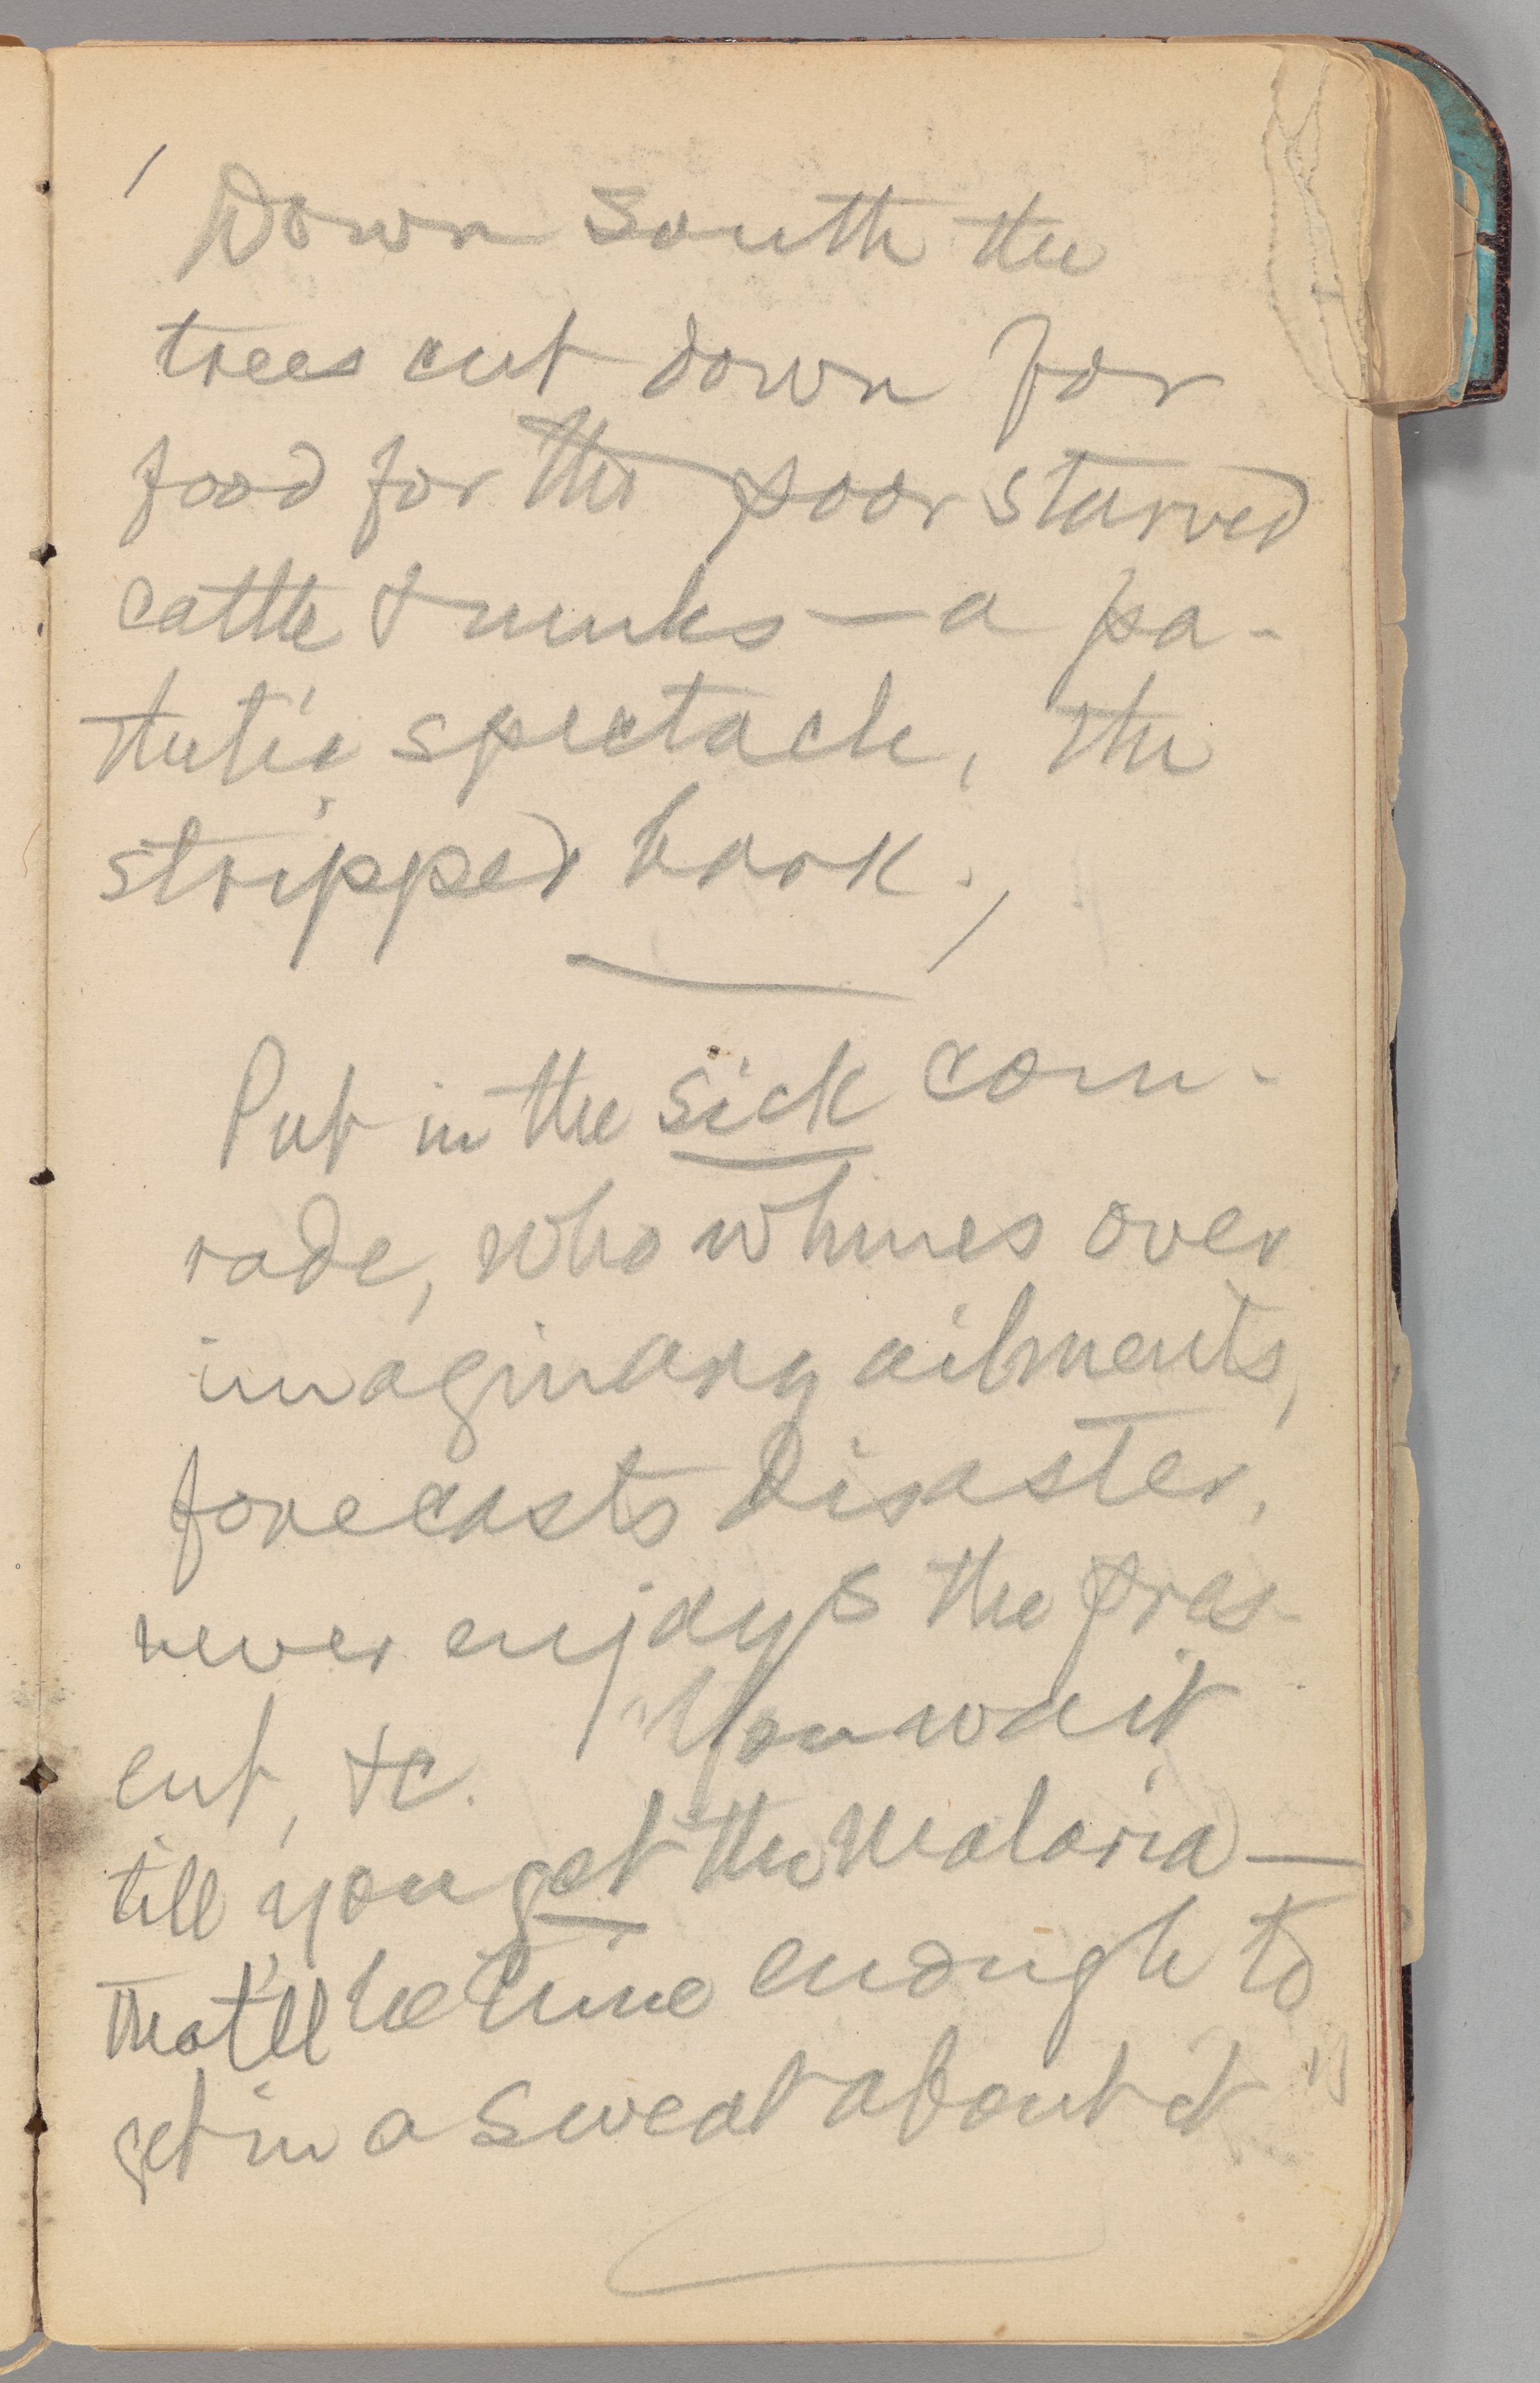 Down South the
trees cut down for
food for the poor starved
cattle & mules — a pa-
thetic spectacle, the
stripped bark.
Put in the sick com-
rade, who whines over
imaginary ailments,
forecasts disaster,
never enjoys the pres-
ent, &c. "You wait
till you get the malaria —
that'll be time enough to
get in a sweat about it."